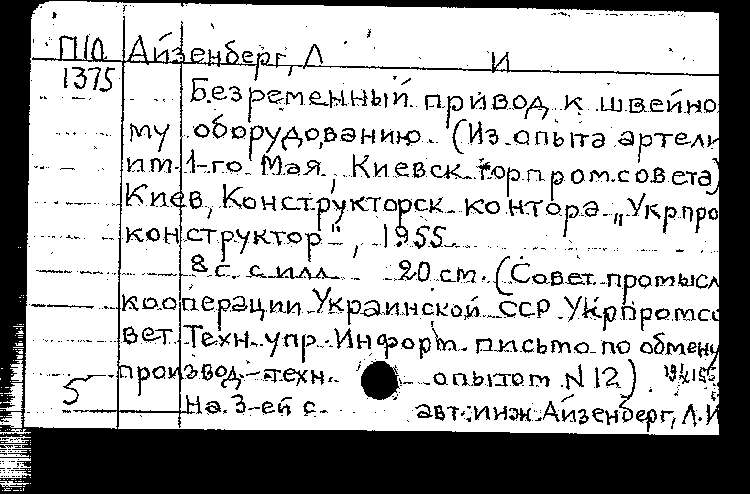 П10 Айзенберг, Л И
1375
Безременный привод к швейно
му оборудованию. (Из опыта артели
им. 1-го Мая, Киевск. горпромсовета)
Киев, Конструкторск. контора „Укрпро
конструктор", 1955.
8 с. с илл. 20 см. (Совет промысл
кооперации Украинской ССР Укрпромсо
вет. Техн. упр. Информ. письмо по обмену
производ.-техн. опытом N 12)
5 На 3-ей с. авт.: инж. Айзенберг, Л. И